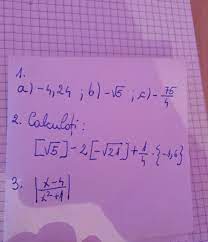 1.
a) -4,24 ; b) -√5 ; c) - 75/4
2. Calculați:
[√5] - 2[-√21] + 1/4 · {-1,6}
3. |x-4 / x²+1|